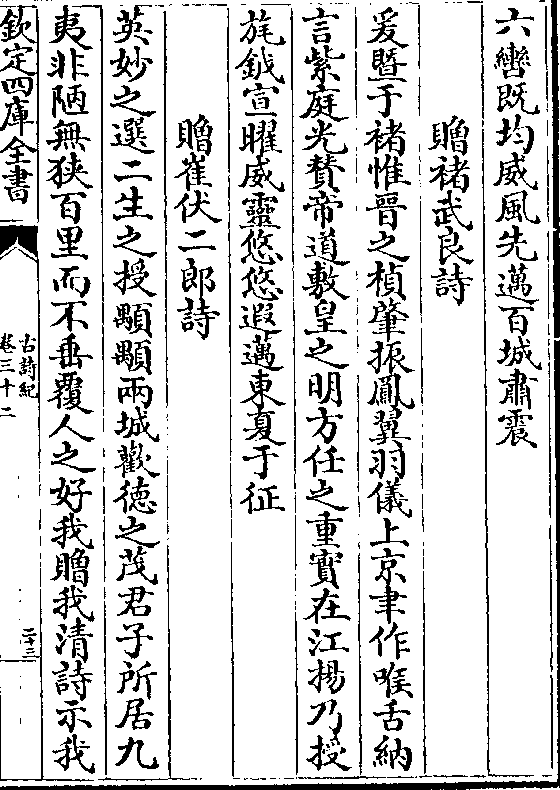 六轡既均威風先邁百城肅震
贈褚武良詩
爰暨于褚惟晉之楨肇振鳳翼羽儀上京聿作喉舌納
言紫庭光賛帝道敷皇之明方任之重實在江揚乃授
旄鉞宣曜威靈悠悠遐邁東夏于征
贈崔伏二郎詩
英妙之選二生之授顒顒兩城歡德之茂君子所居九
夷非陋無狹百里而不垂覆人之好我贈我清詩示我
欽定四庫全書
古詩紀
卷三十二
二十三